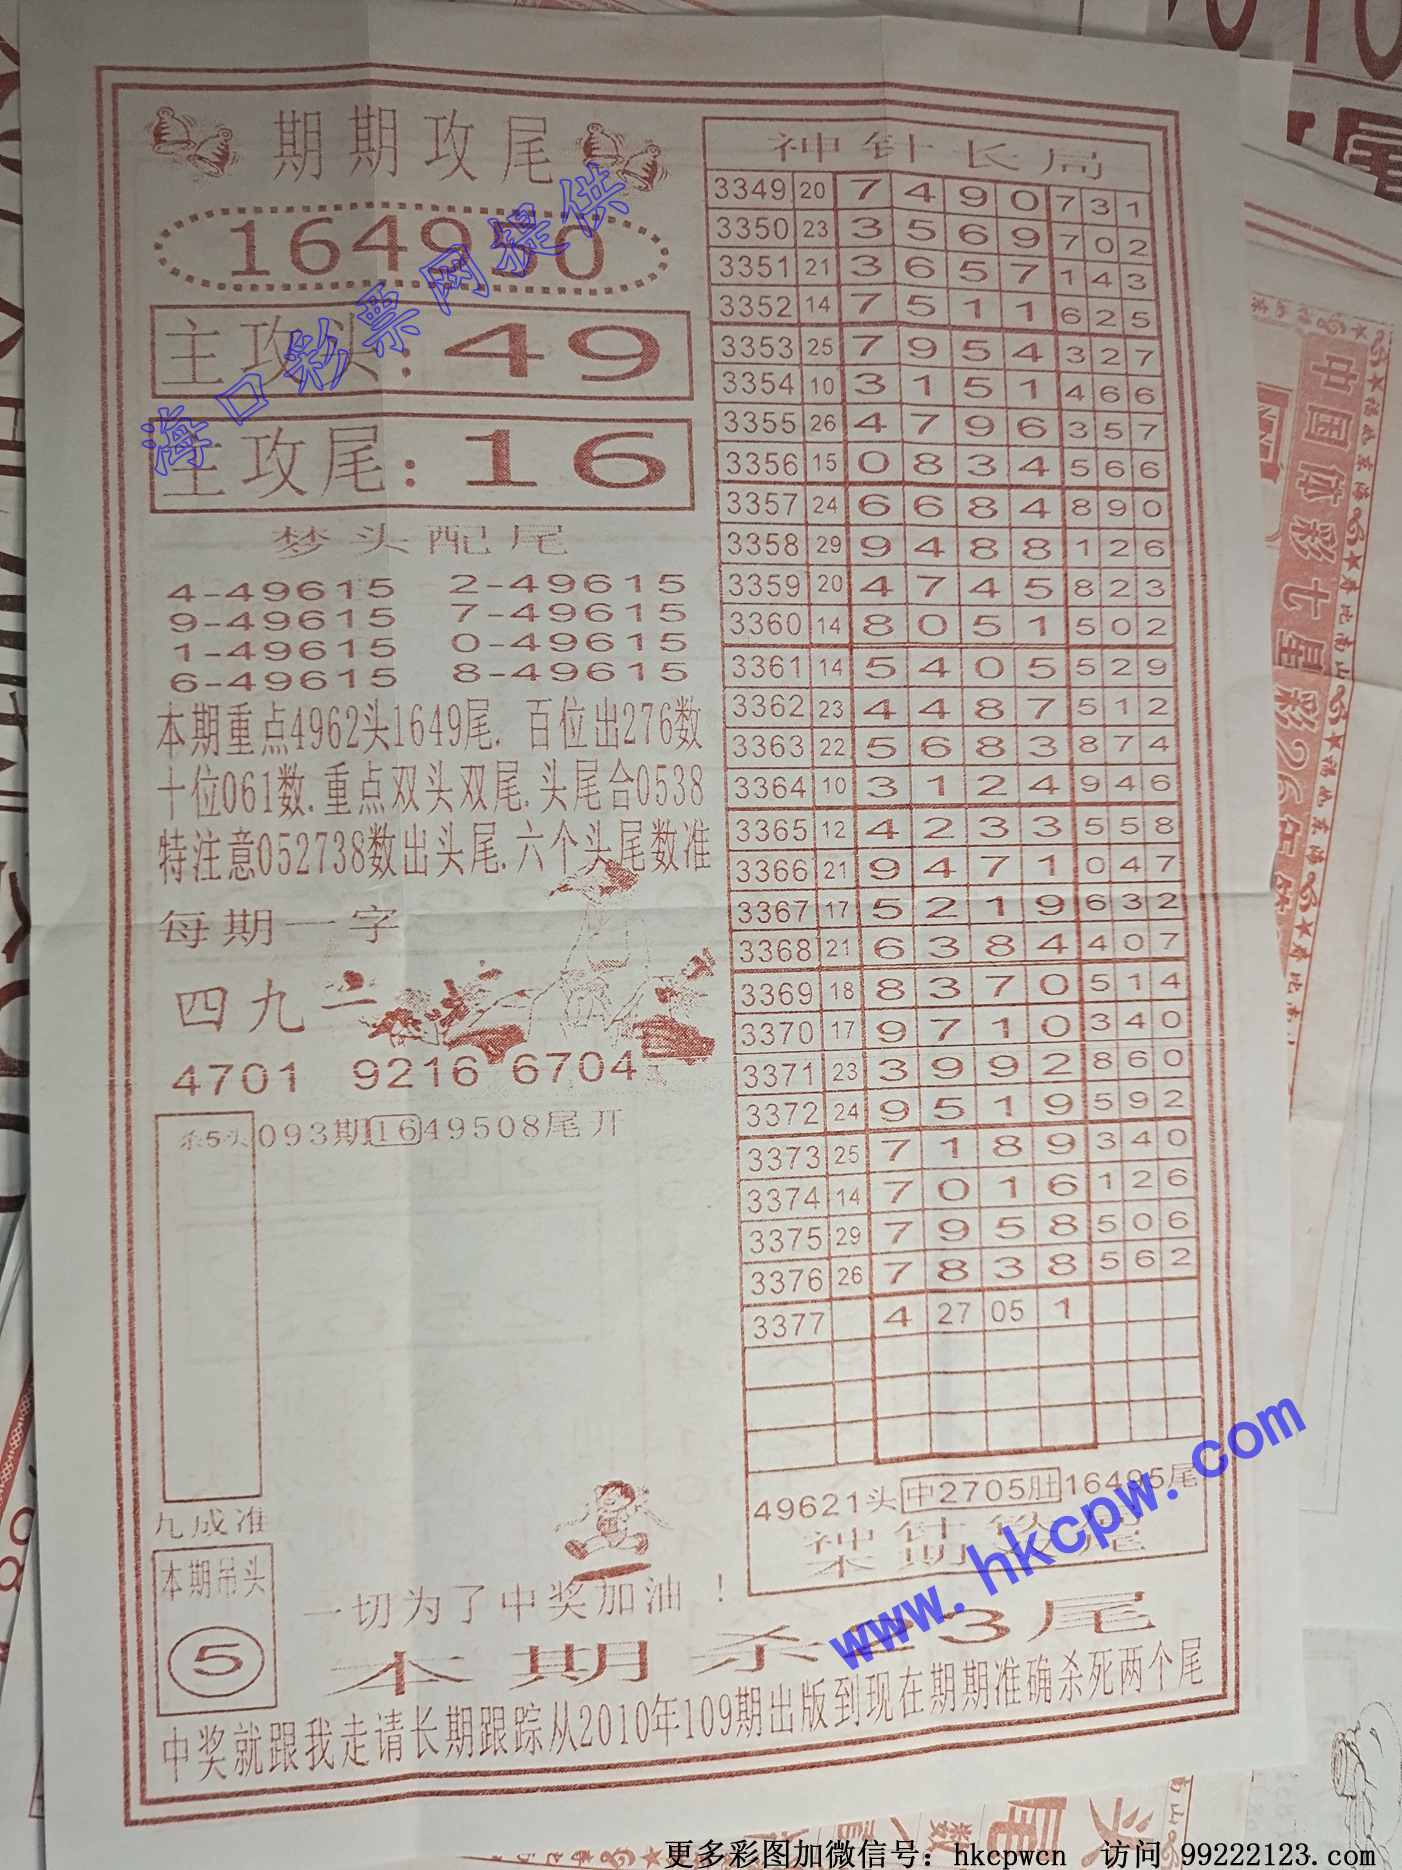 期期攻尾
164950
主攻头:49
主攻尾:16
梦头配尾
4-49615 2-49615
9-49615 7-49615
1-49615 0-49615
6-49615 8-49615
本期重点4962头1649尾. 百位出276数
十位061数.重点双头双尾.头尾合0538
特注意052738数出头尾.六个头尾数准
每期一字
四九二
4701 9216 6704
杀5头 093期1649508尾开
九成准
本期吊头
5
一切为了中奖加油！
本期杀23尾
中奖就跟我走请长期跟踪从2010年109期出版到现在期期准确杀死两个尾
神针长局
3349 20 7 4 9 0 7 3 1
3350 23 3 5 6 9 7 0 2
3351 21 3 6 5 7 1 4 3
3352 14 7 5 1 1 6 2 5
3353 25 7 9 5 4 3 2 7
3354 10 3 1 5 1 4 6 6
3355 26 4 7 9 6 3 5 7
3356 15 0 8 3 4 5 6 6
3357 24 6 6 8 4 8 9 0
3358 29 9 4 8 8 1 2 6
3359 20 4 7 4 5 8 2 3
3360 14 8 0 5 1 5 0 2
3361 14 5 4 0 5 5 2 9
3362 23 4 4 8 7 5 1 2
3363 22 5 6 8 3 8 7 4
3364 10 3 1 2 4 9 4 6
3365 12 4 2 3 3 5 5 8
3366 21 9 4 7 1 0 4 7
3367 17 5 2 1 9 6 3 2
3368 21 6 3 8 4 4 0 7
3369 18 8 3 7 0 5 1 4
3370 17 9 7 1 0 3 4 0
3371 23 3 9 9 2 8 6 0
3372 24 9 5 1 9 5 9 2
3373 25 7 1 8 9 3 4 0
3374 14 7 0 1 6 1 2 6
3375 29 7 9 5 8 5 0 6
3376 26 7 8 3 8 5 6 2
3377 4 27 05 1
49621头 中2705肚 16495尾
海口彩票网提供
www.hkcpw.com
中国体彩七星彩26年
更多彩图加微信号：hkcpwcn 访问 99222123.com